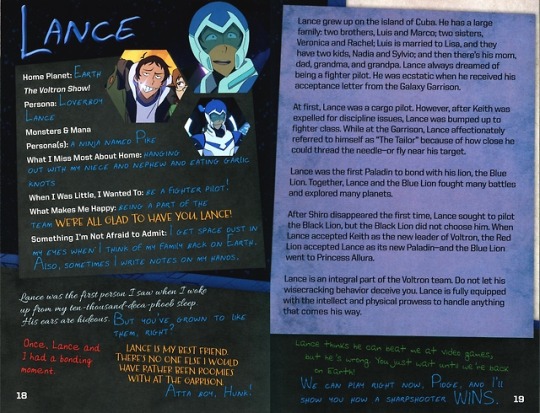 LANCE
Home Planet: EARTH
The Voltron Show!
Persona: LOVERBOY
LANCE
Monsters & Mana
Persona(s): A NINJA NAMED PIKE
What I Miss Most About Home: HANGING
OUT WITH MY NIECE AND NEPHEW AND EATING GARLIC
KNOTS
When I Was Little, I Wanted To: BE A FIGHTER PILOT!
What Makes Me Happy: BEING A PART OF THE
TEAM WE'RE ALL GLAD TO HAVE YOU, LANCE!
Something I'm Not Afraid to Admit: I GET SPACE DUST IN
MY EYES WHEN I THINK OF MY FAMILY BACK ON EARTH.
ALSO, SOMETIMES I WRITE NOTES ON MY HANDS.
Lance was the first person I saw when I woke
up from my ten-thousand-deca-phoeb sleep.
His ears are hideous. BUT YOU'VE GROWN TO LIKE
THEM, RIGHT?
Once, Lance and
I had a bonding
moment.
LANCE IS MY BEST FRIEND.
THERE'S NO ONE ELSE I WOULD
HAVE RATHER BEEN ROOMIES
WITH AT THE GARRISON.
ATTA BOY, HUNK!
18
Lance grew up on the island of Cuba. He has a large
family: two brothers, Luis and Marco; two sisters,
Veronica and Rachel; Luis is married to Lisa, and they
have two kids, Nadia and Sylvio; and then there's his mom,
dad, grandma, and grandpa. Lance always dreamed of
being a fighter pilot. He was ecstatic when he received his
acceptance letter from the Galaxy Garrison.
At first, Lance was a cargo pilot. However, after Keith was
expelled for discipline issues, Lance was bumped up to
fighter class. While at the Garrison, Lance affectionately
referred to himself as "The Tailor" because of how close he
could thread the needle—or fly near his target.
Lance was the first Paladin to bond with his lion, the Blue
Lion. Together, Lance and the Blue Lion fought many battles
and explored many planets.
After Shiro disappeared the first time, Lance sought to pilot
the Black Lion, but the Black Lion did not choose him. When
Lance accepted Keith as the new leader of Voltron, the Red
Lion accepted Lance as its new Paladin—and the Blue Lion
went to Princess Allura.
Lance is an integral part of the Voltron team. Do not let his
wisecracking behavior deceive you. Lance is fully equipped
with the intellect and physical prowess to handle anything
that comes his way.
Lance thinks he can beat me at video games,
but he's wrong. You just wait until we're back
on Earth!
WE CAN PLAY RIGHT NOW, PIDGE, AND I'LL
SHOW YOU HOW A SHARPSHOOTER WINS.
19